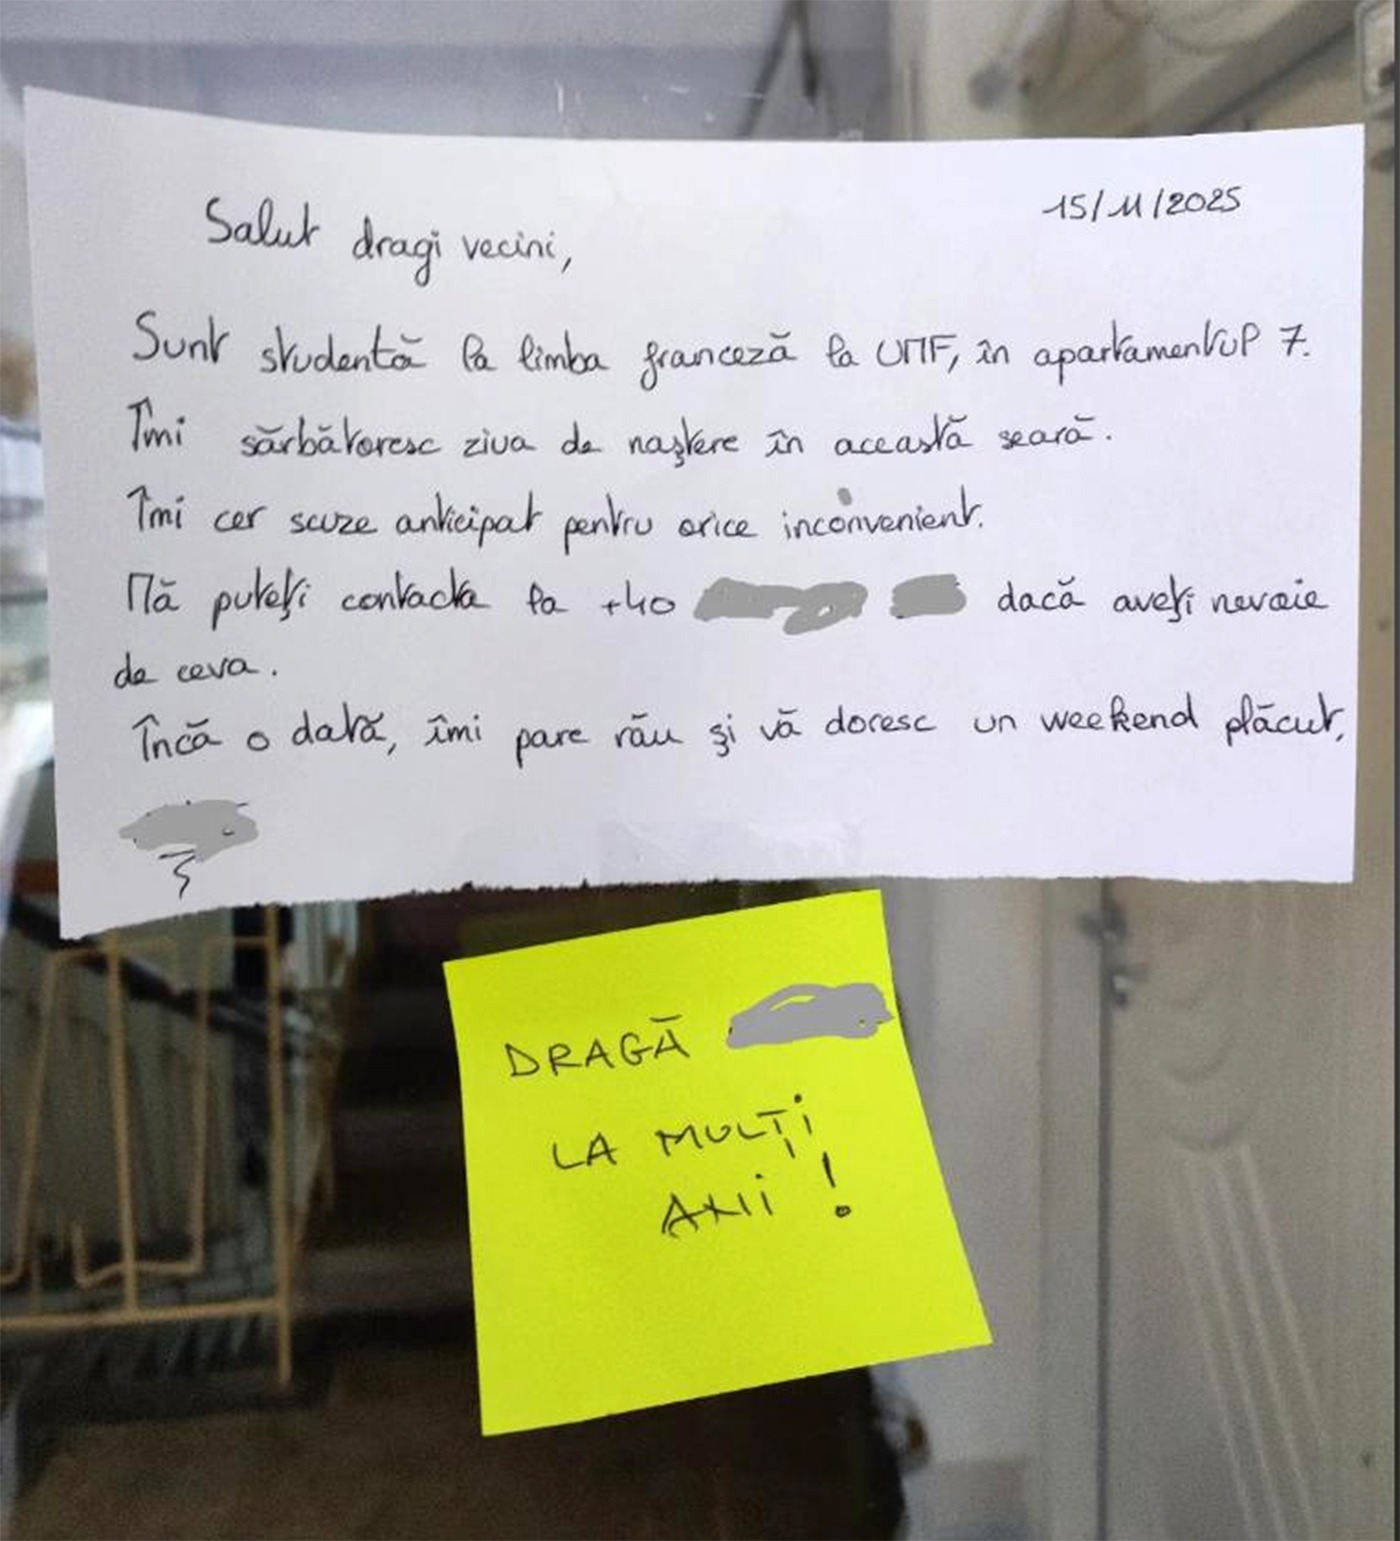 15/11/2025
Salut dragi vecini,
Sunt studentă la limba franceză la UMF, în apartamentul 7.
Îmi sărbătoresc ziua de naştere în această seară.
Îmi cer scuze anticipat pentru orice inconvenient.
Mă puteţi contacta la +40 dacă aveţi nevoie
de ceva.
Încă o dată, îmi pare rău şi vă doresc un weekend plăcut,
DRAGĂ
LA MULȚI
ANI!